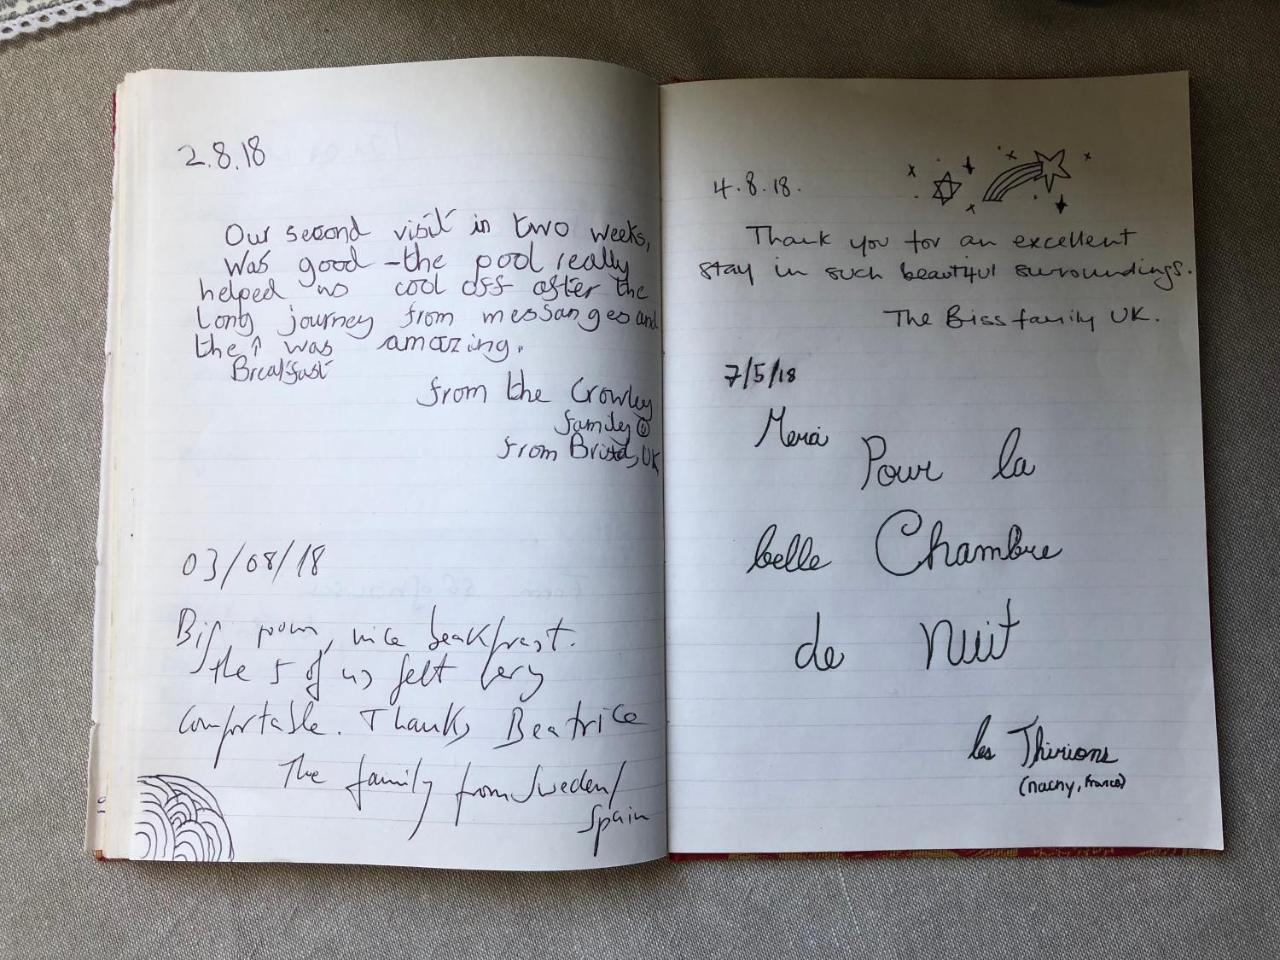 2.8.18
Our second visit in two weeks,
was good - the pool really
helped us cool off after the
long journey from messanges and
the ↑ was amazing.
Breakfast
from the Crowley
family
from Bristol, UK
03/08/18
Big room, nice beakfrast.
the 5 of us felt very
comfortable. Thanks Beatrice
The family from Sweden/
Spain
4.8.18.
Thank you for an excellent
stay in such beautiful surroundings.
The Biss family UK.
7/5/18
Merci Pour la
belle Chambre
de Nuit
les Thirions
(nacny, France)